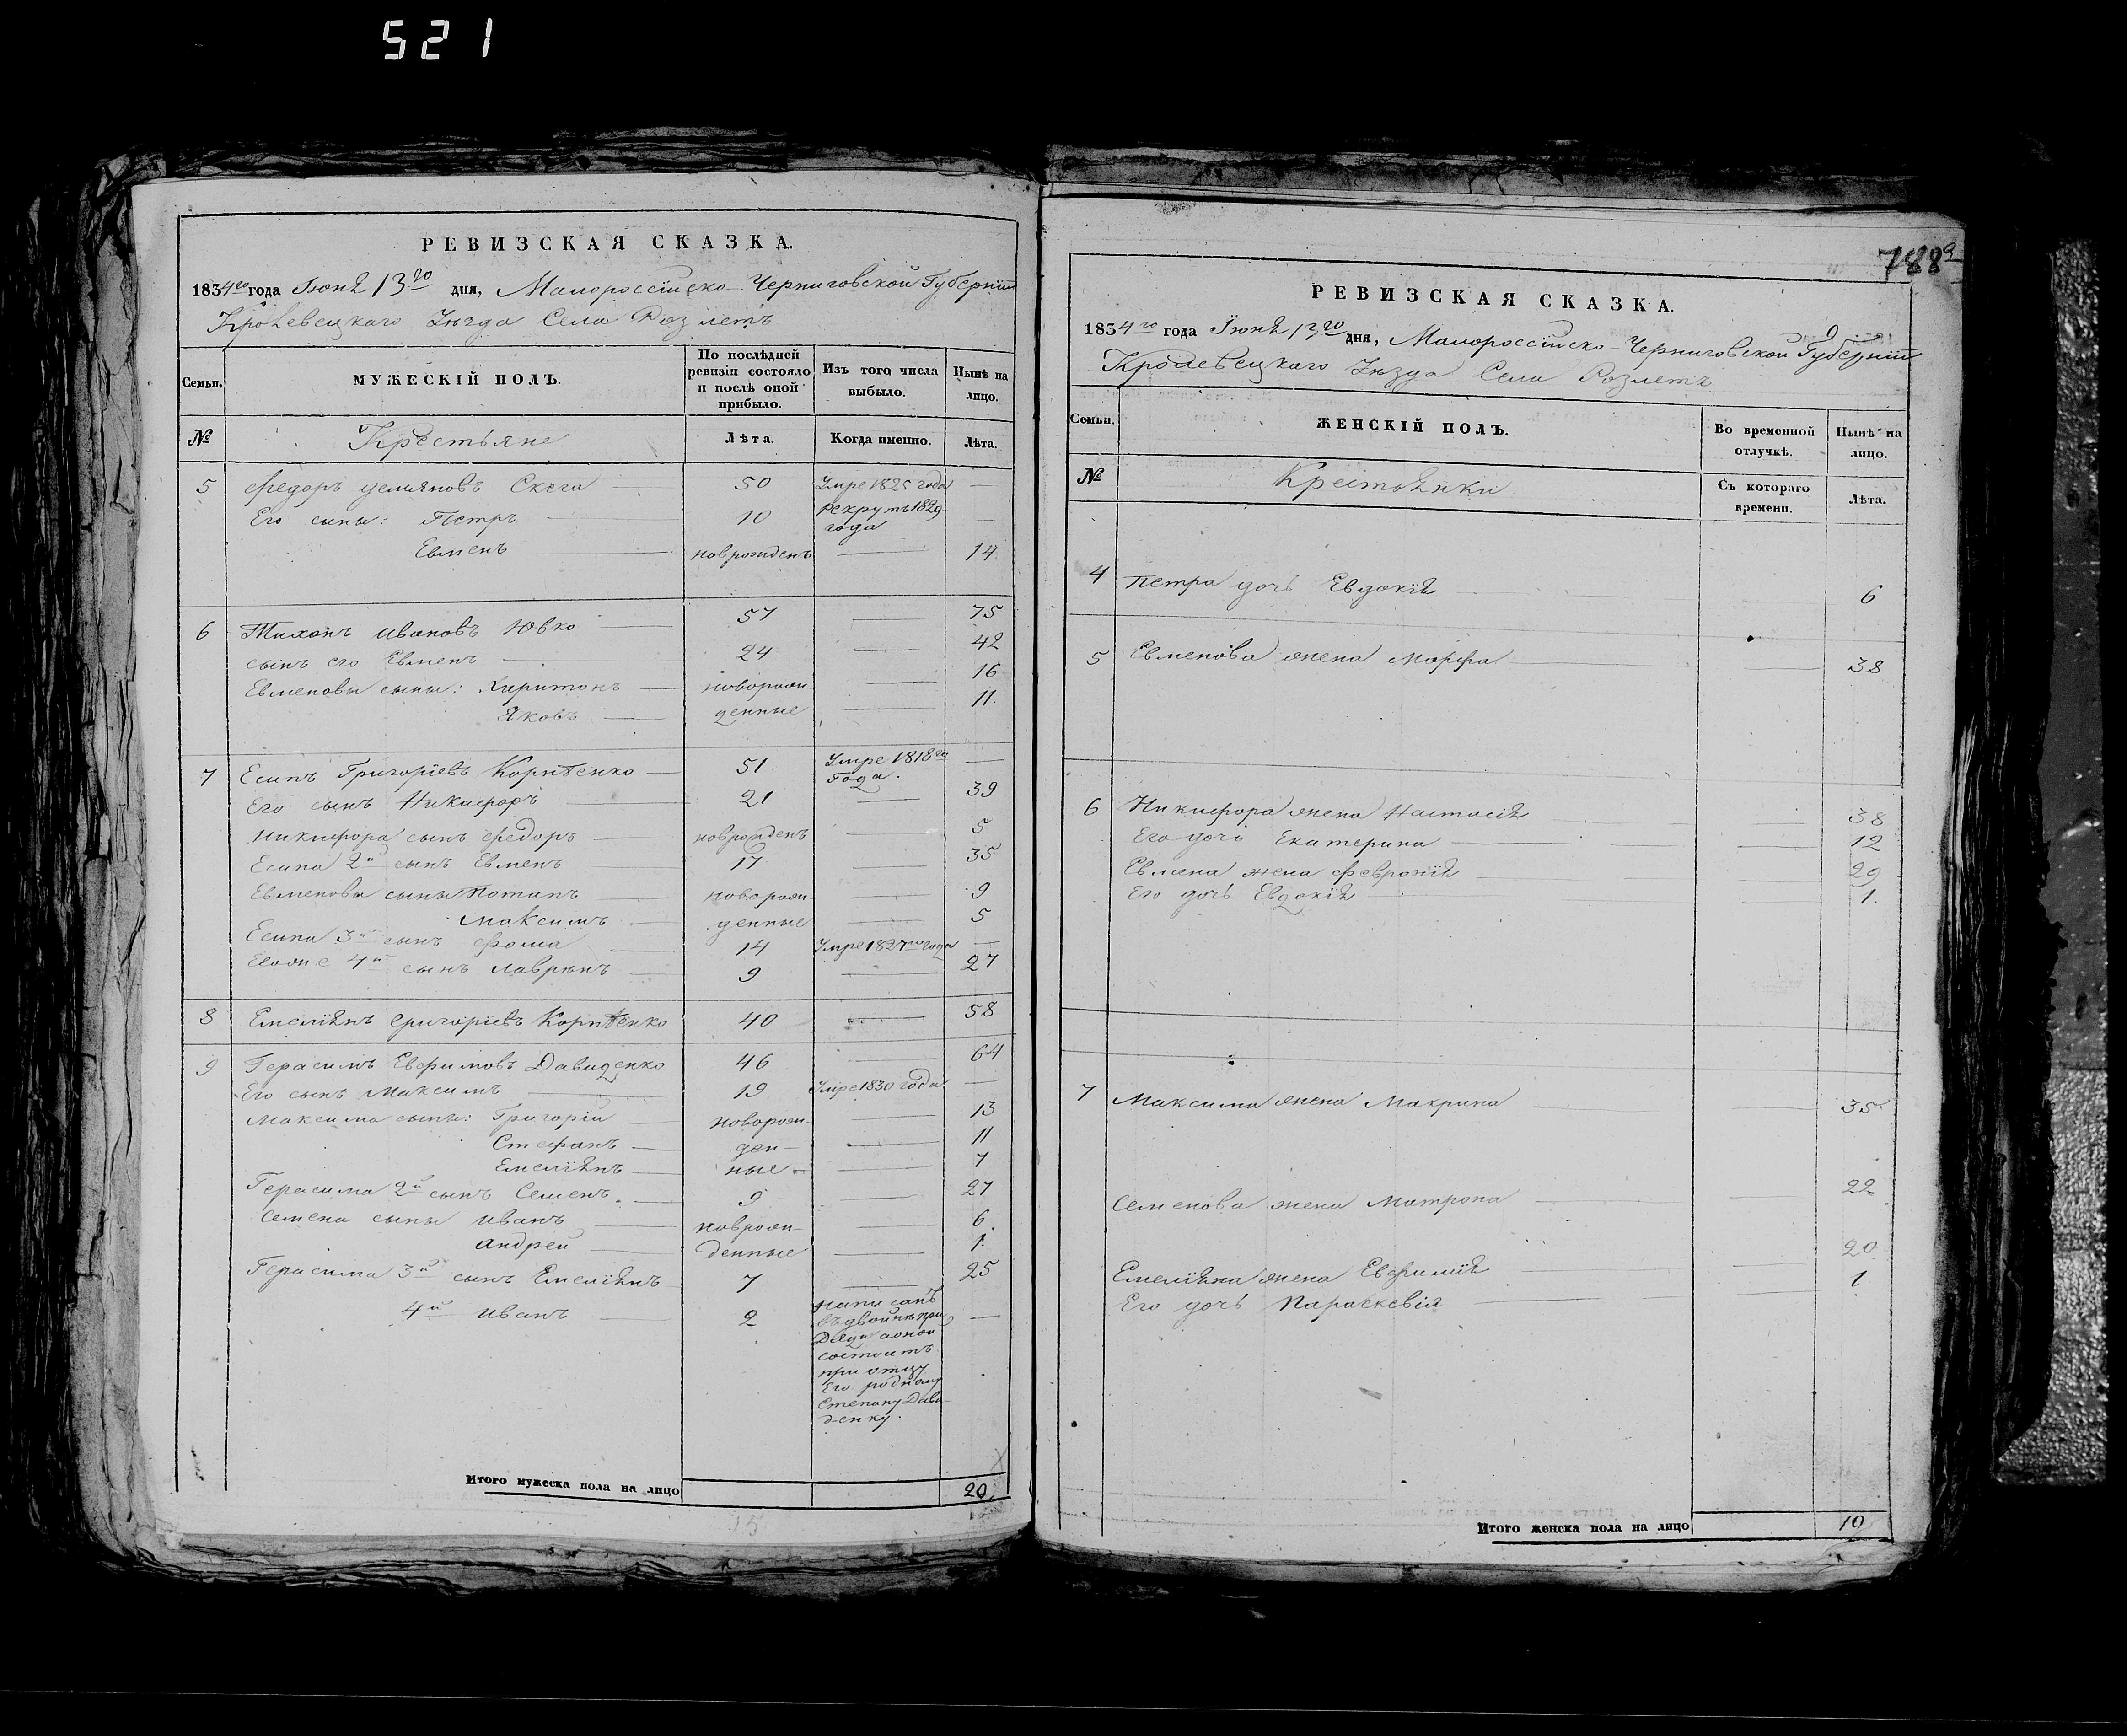 521
РЕВИЗСКАЯ СКАЗКА.
1834го года Іюня 13го дня, Малороссійско-Черниговской Губерніи
Кролевецкаго Уѣзда Села Розлетъ
Семьи. МУЖЕСКІЙ ПОЛЪ. По послѣдней ревизіи состояло и послѣ оной прибыло. Изъ того числа выбыло. Нынѣ на лицо.
№ Крестьяне Лѣта. Когда именно. Лѣта.
5 Федоръ Демяновъ 50 Умре 1825 года —
Его сыны: Петръ 10 Рекрутъ 1829 года —
Евменъ новрожденъ — 14
6 Тихонъ Ивановъ Ювко 57 — 75
сынъ его Евменъ 24 — 42
Евменовы сыны: Харитонъ новорож- — 16
Яковъ денные — 11.
7 Есипъ Григоріевъ 51. Умре 1818го года. —
Его сынъ Никифоръ 21 — 39
Никифора сынъ Федоръ новрожденъ — 5
Есипа 2й сынъ Евменъ 17 — 35
Евменовы сыны Потапъ новорож- — 9
Максимъ денные — 5
Есипа 3й сынъ Фома 14 Умре 1827го года —
4й сынъ Лаврѣнъ 9 — 27
8 Емеліянъ Григоріевъ 40 — 58
9 Герасимъ Евфимовъ Давиденко 46 — 64
Его сынъ Максимъ 19 Умре 1830 года —
Максима сыны: Григорій новорож- — 13
Стефанъ ден- — 11
Емеліянъ ные — 7
Герасима 2й сынъ Семенъ 9 — 27
Семена сыны Иванъ новрож- — 6.
Андрей денные — 1.
Герасима 3й сынъ Емеліянъ 7 — 25
4й Иванъ 2 Написанъ —
въ двойнѣ при
Дяди а оной
состоитъ
при отцу
Его родному
Степану Дави-
денку.
Итого мужеска пола на лицо 20.
15
788
РЕВИЗСКАЯ СКАЗКА.
1834го года Іюня 13го дня, Малороссійско-Черниговской Губерніи
Кролевецкаго Уѣзда Села Розлетъ
Семьи. ЖЕНСКІЙ ПОЛЪ. Во временной отлучкѣ. Нынѣ на лицо.
№ Крестьянки Съ котораго времени. Лѣта.
4 Петра дочь Евдокія — 6
5 Евменова жена Марфа — 38
6 Никифора жена Настасія — 38
Его дочь Екатерина — 12
Евмена жена Февронія — 29
Его дочь Евдокія — 1.
7 Максима жена Макрина — 35
Семенова жена Матрона 22
Емеліяна жена Евфимія — 20
Его дочь Параскевія — 1
Итого женска пола на лицо 10